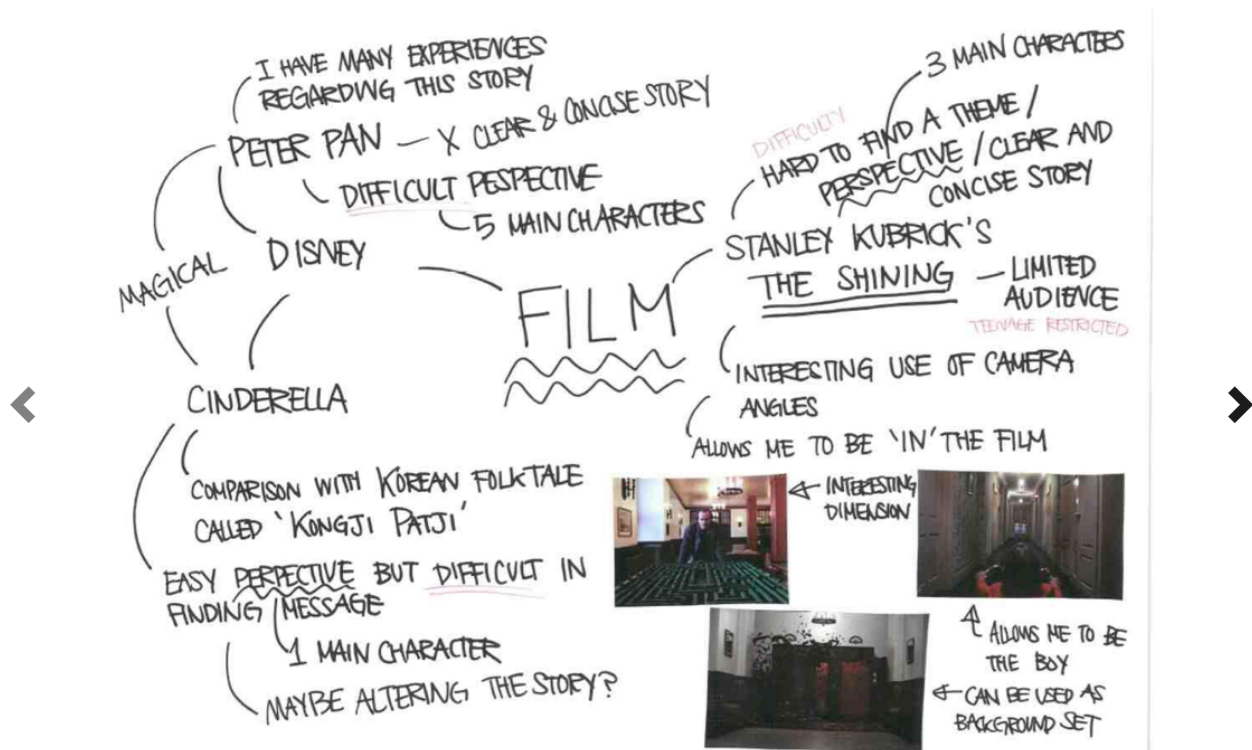 I HAVE MANY EXPERIENCES
REGARDING THIS STORY
PETER PAN — X CLEAR & CONCISE STORY
DIFFICULT PESPECTIVE
5 MAIN CHARACTERS
MAGICAL
DISNEY
CINDERELLA
COMPARISON WITH KOREAN FOLKTALE
CALLED 'KONGJI PATJI'
EASY PERPECTIVE BUT DIFFICULT IN
FINDING MESSAGE
1 MAIN CHARACTER
MAYBE ALTERING THE STORY?
FILM
3 MAIN CHARACTERS
DIFFICULTY
HARD TO FIND A THEME /
PERSPECTIVE / CLEAR AND
CONCISE STORY
STANLEY KUBRICK'S
THE SHINING
LIMITED
AUDIENCE
TEENAGE RESTRICTED
INTERESTING USE OF CAMERA
ANGLES
ALLOWS ME TO BE 'IN' THE FILM
INTERESTING
DIMENSION
ALLOWS ME TO BE
THE BOY
CAN BE USED AS
BACKGROUND SET